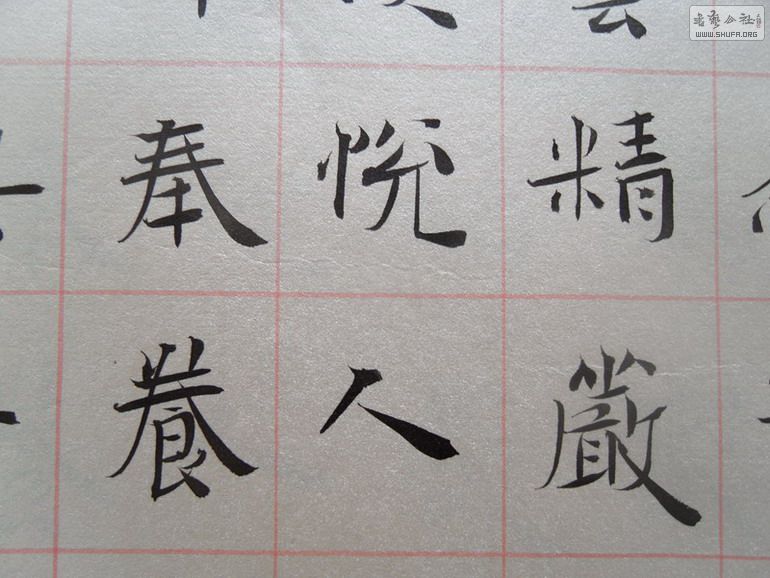 精嚴
悅人
奉養
书艺公社
WWW.SHUFA.ORG